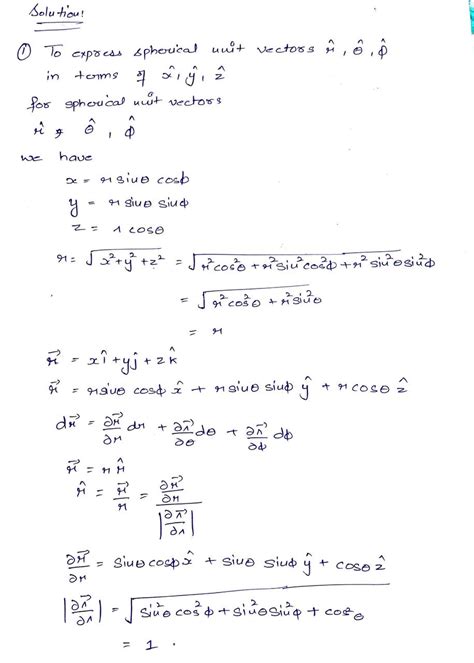 Solution:
① To express spherical unit vectors r̂, θ̂, ϕ̂
in terms of x̂, ŷ, ẑ
for spherical unit vectors
r̂, θ̂, ϕ̂
we have
x = r sinθ cosϕ
y = r sinθ sinϕ
z = r cosθ
r = √(x²+y²+z²) = √(r²cos²θ + r²sin²cos²ϕ + r²sin²θsin²ϕ)
= √(r²cos²θ + r²sin²θ)
= r
r⃗ = xî + yĵ + zk̂
r⃗ = r sinθ cosϕ x̂ + r sinθ sinϕ ŷ + r cosθ ẑ
dr⃗ = ∂r⃗/∂r dr + ∂r⃗/∂θ dθ + ∂r⃗/∂ϕ dϕ
r⃗ = r r̂
r̂ = r⃗/r = (∂r⃗/∂r)/|∂r⃗/∂r|
∂r⃗/∂r = sinθ cosϕ x̂ + sinθ sinϕ ŷ + cosθ ẑ
|∂r⃗/∂r| = √(sin²θ cos²ϕ + sin²θ sin²ϕ + cos²θ)
= 1 .